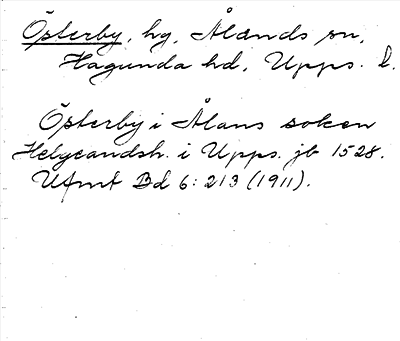 Österby, hg, Ålands sn,
Hagunda hd, Upps. l.
Österby i Ålans soken
Helgeandsh. i Upps. jb 1528.
UFmt Bd 6: 213 (1911).